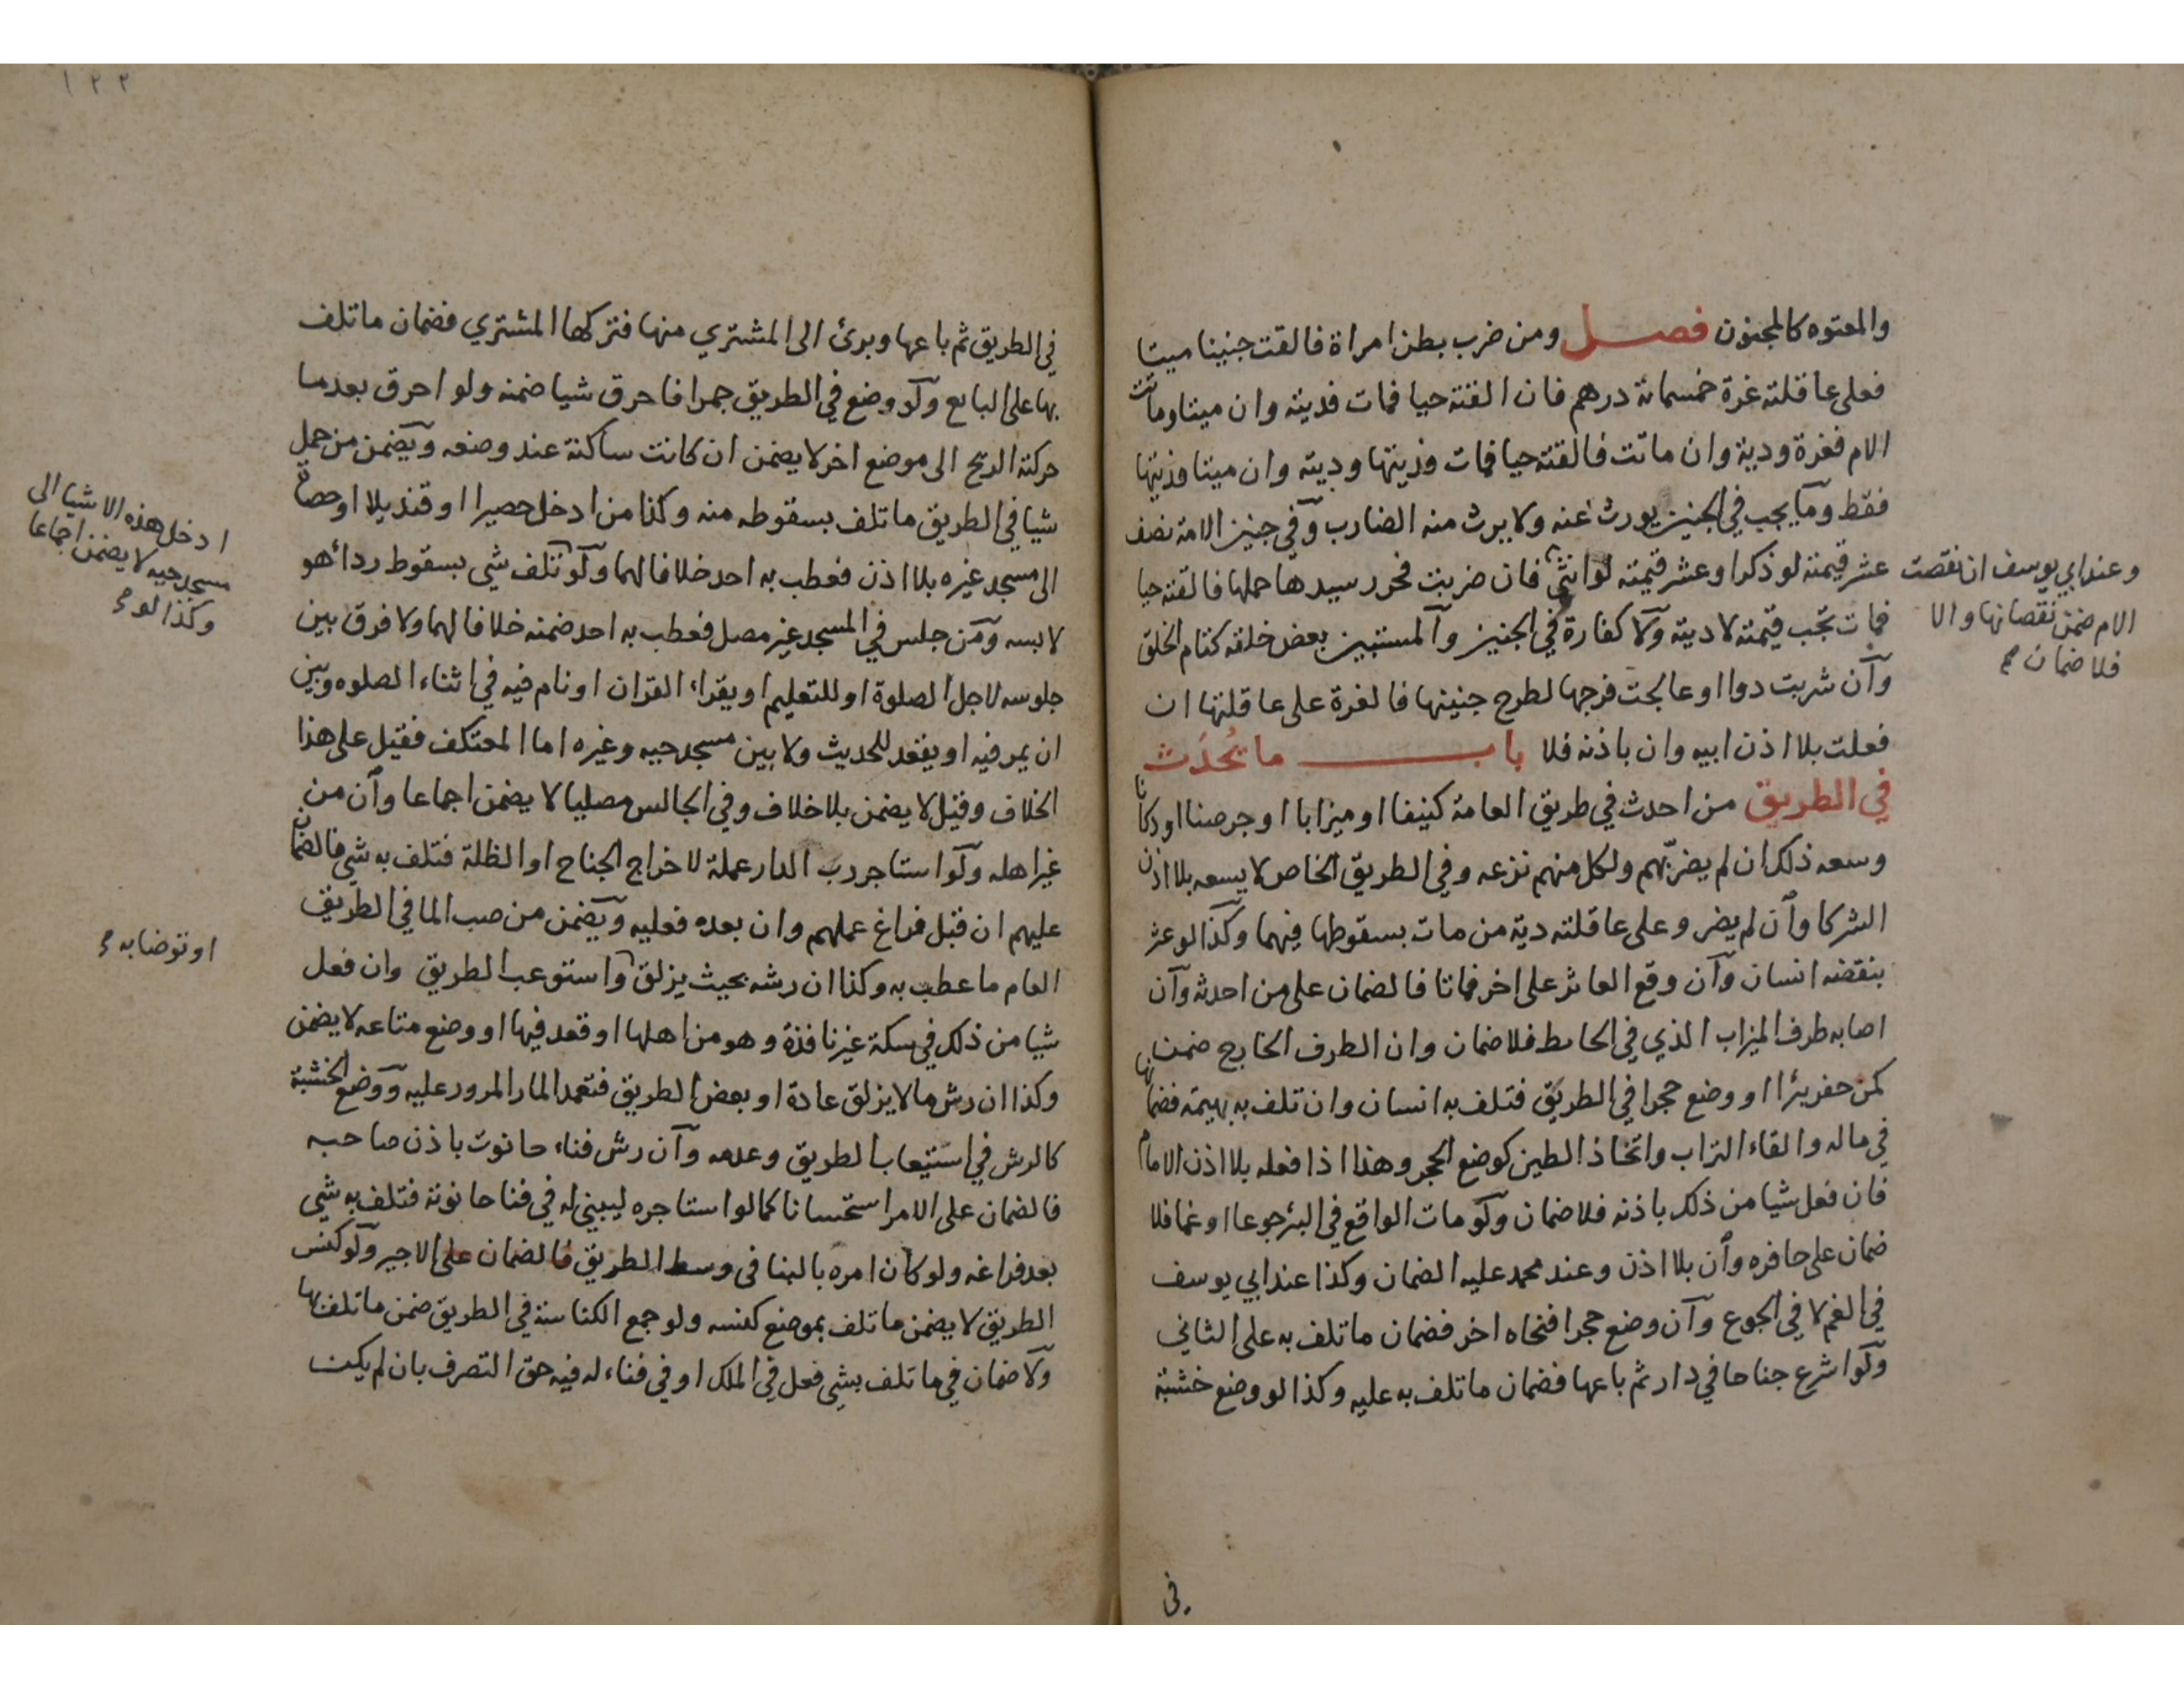 والمعتوه كالمجنون فصل ومن ضرب بطن امراة فالقت جنينا ميتا
فعلى عاقلته غرة خمسمائة درهم فان القته حيا فمات فديته وان ميتا وماتت
الام فغرة ودية وان ماتت فالقته حيا فمات فديتها وديته وان ميتا فديتها
فقط وما يجب في الجنين يورث عنه ولا يرث منه الضارب وفي جنين الامة نصف
عشر قيمته لو ذكرا وعشر قيمته لو انثى فان ضربت فحرر سيدها حملها فالقته حيا
فمات تجب قيمته لا ديته ولا كفارة في الجنين والمستبين بعض خلقه كتام الخلق
وان شربت دوا او عالجت فرجها لطرح جنينها فالغرة على عاقلتها ان
فعلت بلا اذن ابيه وان باذنه فلا باب ما يُحدَث
في الطريق من احدث في طريق العامة كنيفا او ميزابا او جرصنا او دكانا
وسعه ذلك ان لم يضر بهم ولكل منهم نزعه وفي الطريق الخاص لا يسعه بلا اذن
الشركا وان لم يضر وعلى عاقلته دية من مات بسقوطها فيهما وكذا لو عثر
بنقضه انسان وان وقع العاثر على اخر فماتا فالضمان على من احدثه وان
اصابه طرف الميزاب الذي في الحائط فلا ضمان وان الطرف الخارج ضمن
كمن حفر بئرا او وضع حجرا في الطريق فتلف به انسان وان تلف به بهيمة فضمانها
في ماله والقاء التراب واتخاذ الطين كوضع الحجر وهذا اذا فعله بلا اذن الامام
فان فعل شيا من ذلك باذنه فلا ضمان ولو مات الواقع في البئر جوعا او غما فلا
ضمان على حافره وان بلا اذن وعند محمد عليه الضمان وكذا عند ابي يوسف
في الغم لا في الجوع وان وضع حجرا فنحاه اخر فضمان ما تلف به على الثاني
ولو اشرع جناحا في دار ثم باعها فضمان ما تلف به عليه وكذا لو وضع خشبة
وعند ابي يوسف ان نقصت
الام ضمن نقصانها والا
فلا ضمان
في
١٢٢
في الطريق ثم باعها وبرئ الى المشتري منها فتركها المشتري فضمان ما تلف
بها على البايع ولو وضع في الطريق جمرا فاحرق شيا ضمنه ولو احرق بعدما
حركته الريح الى موضع اخر لا يضمن ان كانت ساكنة عند وضعه ويضمن من حمل
شيا في الطريق ما تلف بسقوطه منه وكذا من ادخل حصيرا او قنديلا او حصاة
الى مسجد غيره بلا اذن فعطب به احد خلافا لهما ولو تلف شي بسقوط ردائه هو
لابسه ومن جلس في المسجد غير مصل فعطب به احد ضمنه خلافا لهما ولا فرق بين
جلوسه لاجل الصلوة او للتعليم او يقراء القران او نام فيه في اثناء الصلوه وبين
ان يمر فيه او يقعد للحديث ولا بين مسجد حيه وغيره اما المعتكف فقيل على هذا
الخلاف وقيل لا يضمن بلا خلاف وفي الجالس مصليا لا يضمن اجماعا وان من
غير اهله ولو استاجر رب الدار عملة لاخراج الجناح او الظلة فتلف به شي فالضمان
عليهم ان قبل فراغ عملهم وان بعده فعليه ويضمن من صب الما في الطريق
العام ما عطب به وكذا ان رشه بحيث يزلق واستوعب الطريق وان فعل
شيا من ذلك في سكة غير نافذة وهو من اهلها او قعد فيها او وضع متاعه لا يضمن
وكذا ان رش ما لا يزلق عادة او بعض الطريق فتعمد المار المرور عليه ووضع الخشبة
كالرش في استيعاب الطريق وعدمه وان رش فناء حانوت باذن صاحبه
فالضمان على الامر استحسانا كما لو استاجره ليبني له في فنا حانوته فتلف به شي
بعد فراغه ولو كان امره بالبنا في وسط الطريق فالضمان على الاجير ولو كنس
الطريق لا يضمن ما تلف بموضع كنسه ولو جمع الكناسة في الطريق ضمن ما تلف بها
ولا ضمان في ما تلف بشي فعل في الملك او في فناء له فيه حق التصرف بان لم يكن
ادخل هذه الاشيا الى
مسجد حيه لا يضمن اجماعا
وكذا لو
او توضا به